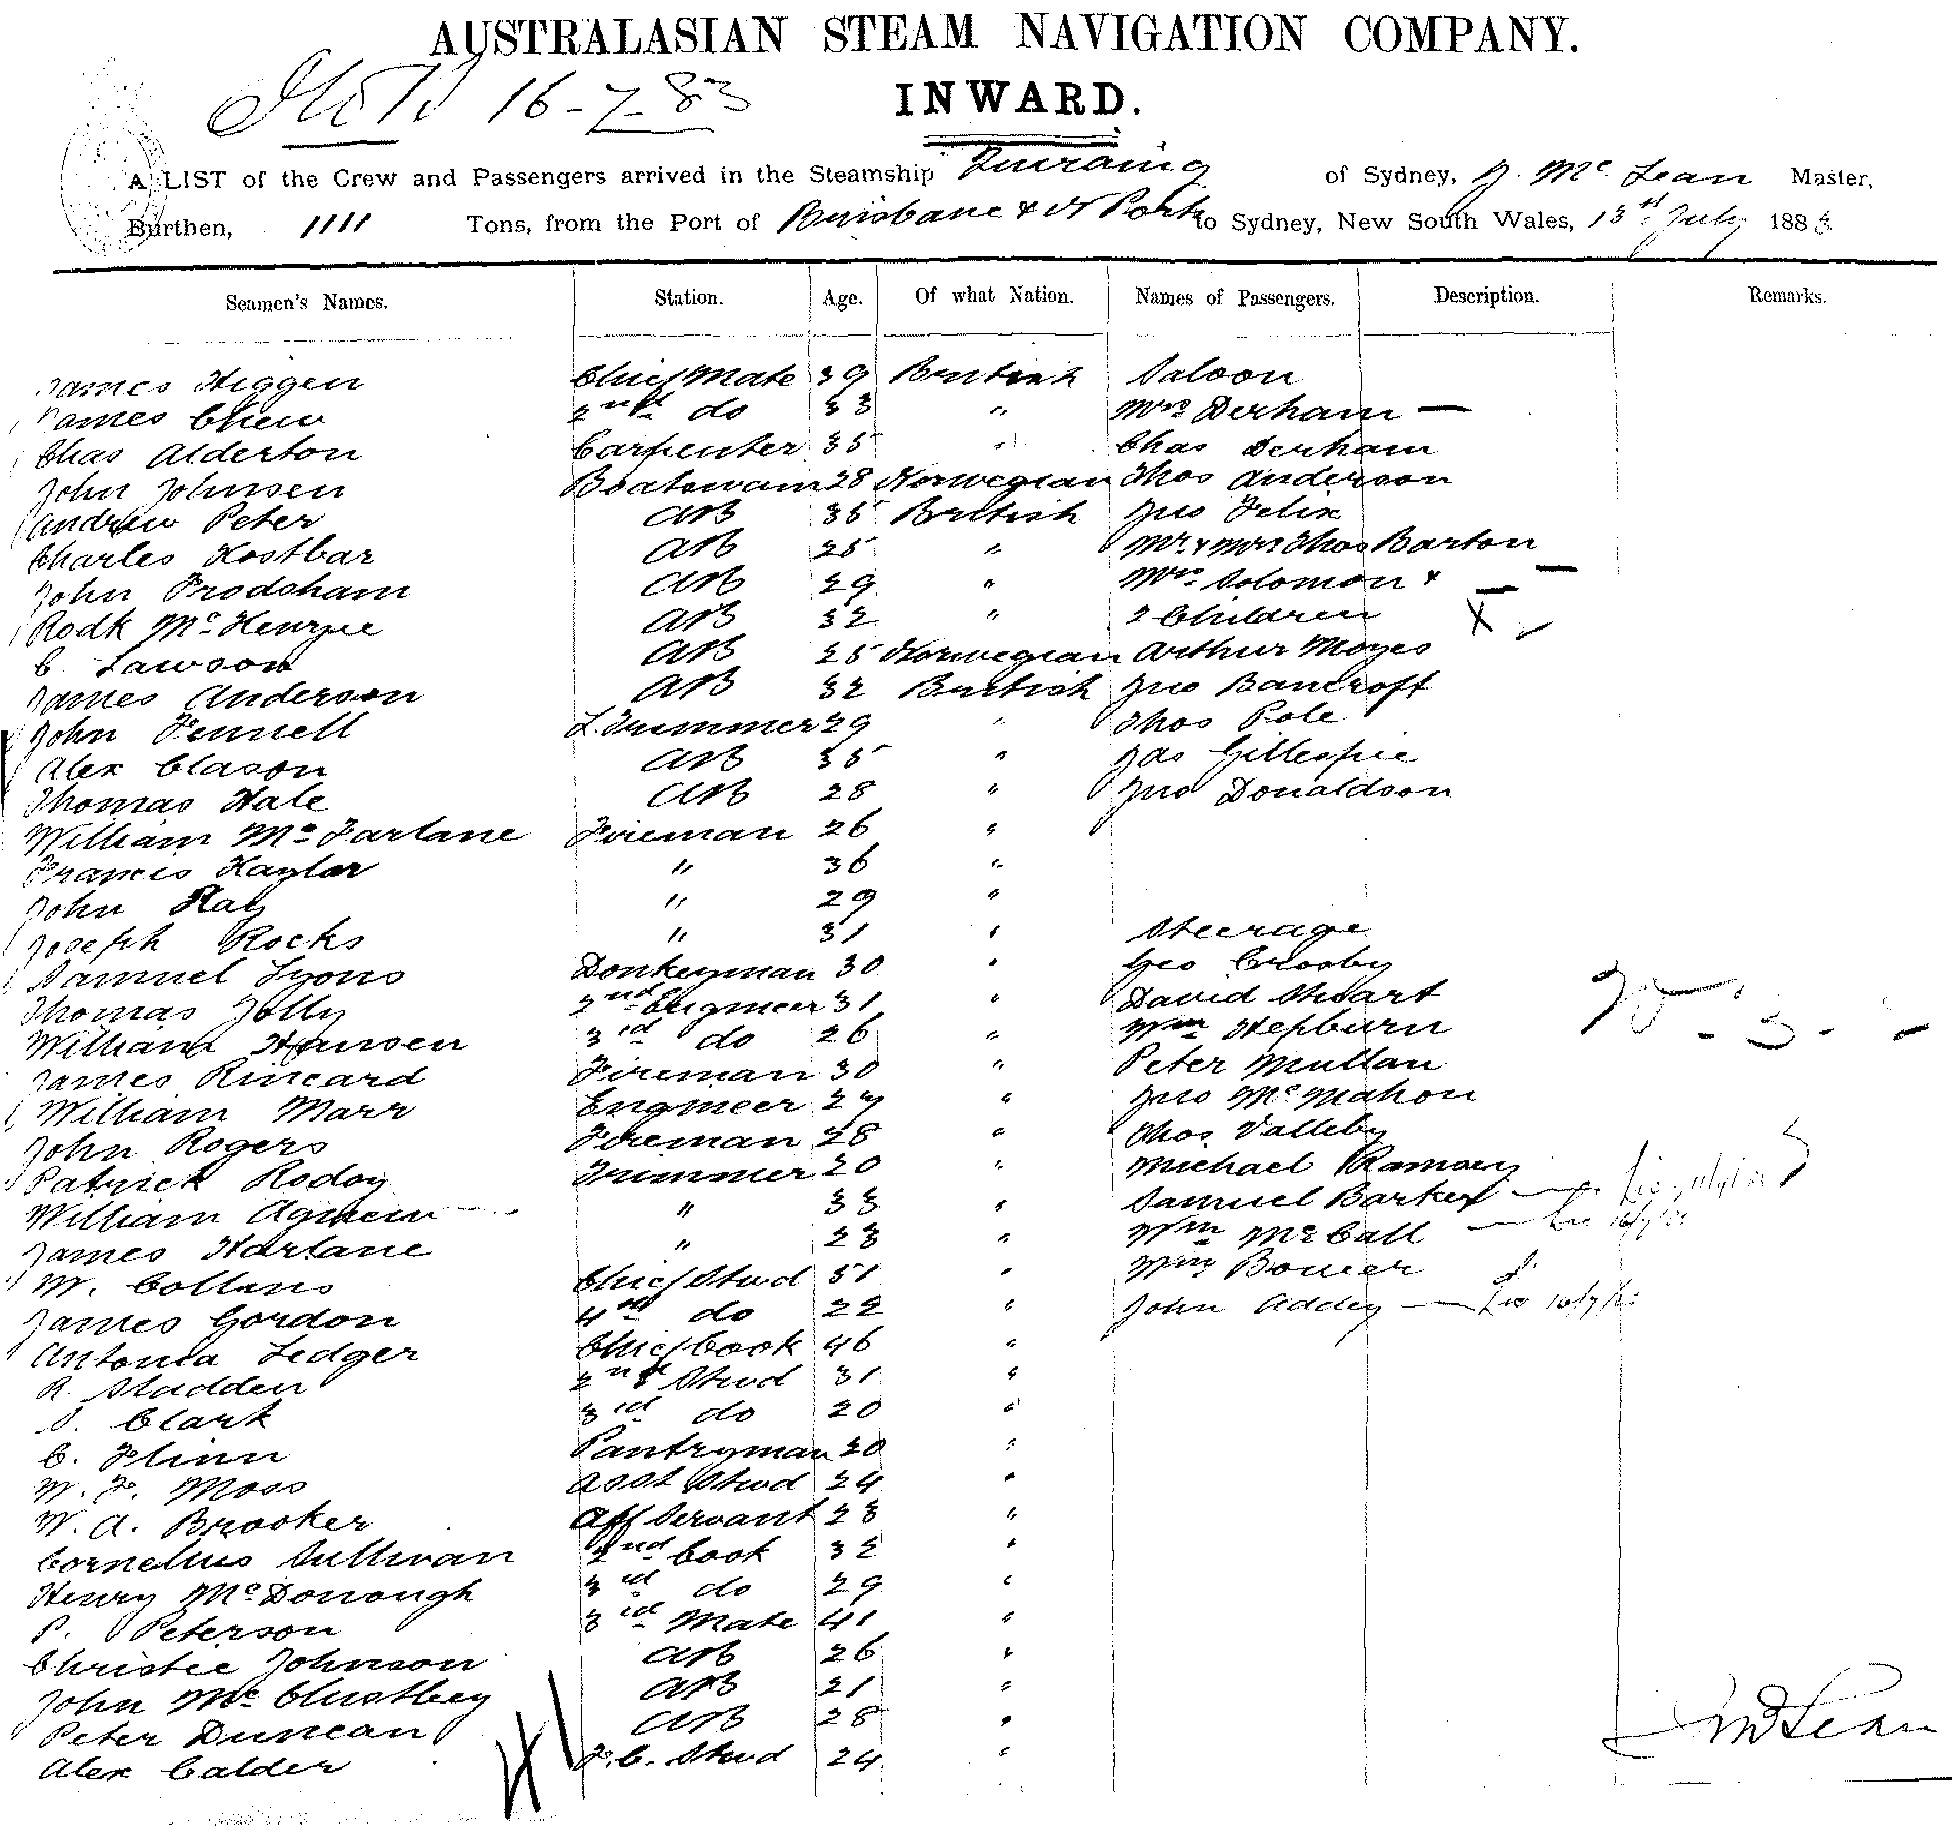 AUSTRALASIAN STEAM NAVIGATION COMPANY.
16-7-83 INWARD.
A LIST of the Crew and Passengers arrived in the Steamship of Sydney, J. Mc Lean Master,
Burthen, 1111 Tons, from the Port of Brisbane & Ports to Sydney, New South Wales, 13th July 188
Seamen's Names. Station. Age. Of what Nation. Names of Passengers. Description. Remarks.
James Higgen Chief Mate 39 British Saloon
James Chew 2nd do 33 " Mrs Derham —
Chas Alderton Carpenter 35 " Chas Derham
John Johnsen Boatswain 28 Norwegian Thos Anderson
Andrew Peter AB 35 British Jno Felix
Charles Hostbar AB 25 " Mr & Mrs Thos Barton
John Frodsham AB 29 " Mrs Solomon &
Rodk Mc Kenzie AB 32 " 2 Children X
C. Lawson AB 25 Norwegian Arthur Moyes
James Anderson AB 32 British Jno Bancroft
John Fennell L. Trimmer 29 " Thos Pole
Alex Clason AB 35 " Jas Gillespie
Thomas Hale AB 28 " Jno Donaldson
William Mc Farlane Fireman 26 "
Francis Haylar " 36 "
John Hay " 29 "
Joseph Rocks " 31 " Steerage
Samuel Lyons Donkeyman 30 " Geo Crosby
Thomas Jolly 2nd Engineer 31 " David Stuart
William Hansen 3rd do 26 " Wm Hepburn
James Rineard Fireman 30 " Peter Mullan
William Marr Engineer 27 " Jno Mc Mahon
John Rogers Fireman 28 " Thos Valleby
Patrick Rodoy Trimmer 20 " Michael Ramsey
William " 33 " Samuel Barker
James Harlane " 23 " Wm Mc Call
W. Collins Chief Stud 51 " Wm Bower
James Gordon 4th do 22 " John Addey
Antonia Ledger Chief Cook 46 "
R. Stadden 2nd Stwd 31 "
S. Clark 3rd do 20 "
C. Flinn Pantryman 20 "
W. F. Moss Asst Stwd 24 "
W. A. Brooker Aft Servant 23 "
Cornelius Sullivan 2nd Cook 32 "
Henry Mc Donough 3rd do 29 "
P. Peterson 3rd Mate 41 "
Christie Johnson AB 26 "
John Mc AB 21 "
Peter Duncan AB 28 "
Alex Calder F. C. Stwd 24 "
J McLean